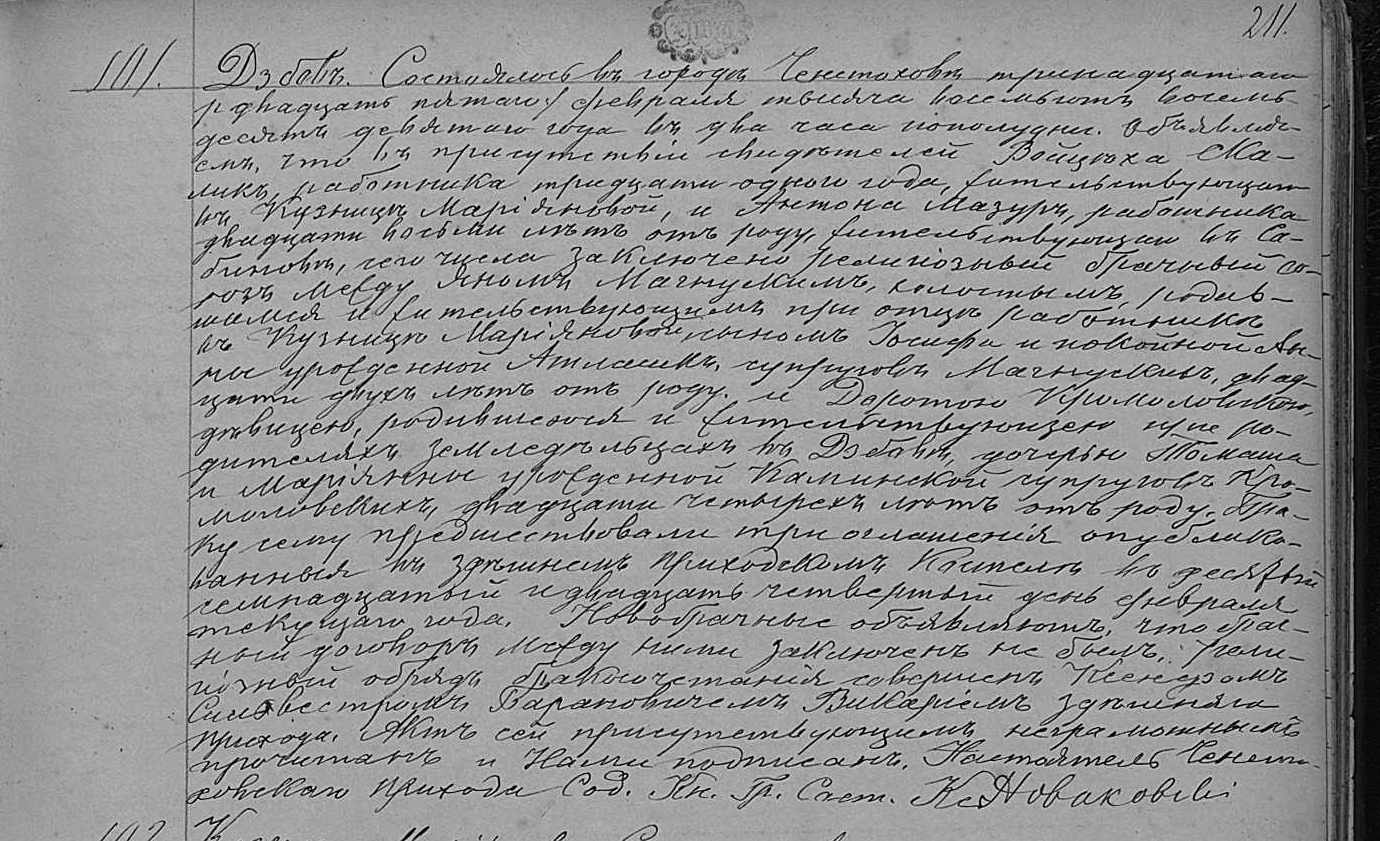 211.
101. Дзбовъ. Состоялось въ городѣ Ченстоховѣ тринадцатаго
/ двадцать пятаго / февраля тысяча восемьсотъ восемь-
десятъ девятаго года въ два часа пополудни. Объявля-
емъ, что въ присутствіи свидѣтелей Войцѣха Ма-
ликъ, работника тридцати одного года, жительствующаго
въ Кузницѣ Маріяновой, и Антона Мазуръ, работника
двадцати восьми лѣтъ отъ роду, жительствующаго въ Са-
биновѣ, сего числа заключено религіозный брачный со-
юзъ между Яномъ Магнускимъ, холостымъ, родив-
шимся и жительствующимъ при отцѣ работникѣ
въ Кузницѣ Маріяновой, сыномъ Іосифа и покойной Ан-
ны урожденной супруговъ Магнускихъ, двад-
цати двухъ лѣтъ отъ роду. и Доротою Кромоловскою,
дѣвицею, родившеюся и жительствующею при ро-
дителяхъ земледѣльцахъ въ Дзбовѣ, дочерью Томаша
и Маріянны урожденной Каминской супруговъ Кро-
моловскихъ, двадцати четырехъ лѣтъ отъ роду. Бра-
ку сему предшествовали три оглашенія опублико-
ванныя въ здѣшнемъ приходскомъ Костелѣ въ десятый
семнадцатый и двадцать четвертый день февраля
текущаго года. Новобрачные объявляютъ, что брач-
ный договоръ между ними заключенъ не былъ. Рели-
гіозный обрядъ бракосочетанія совершенъ Ксендзомъ
Сильвестромъ Барановичемъ Викаріемъ здѣшняго
прихода. Актъ сей присутствующимъ неграмотнымъ
прочитанъ и Нами подписанъ. Настоятель Ченсто-
ховскаго прихода Сод. Кн. Гр. Сост. Кс. Новаковскі
102.